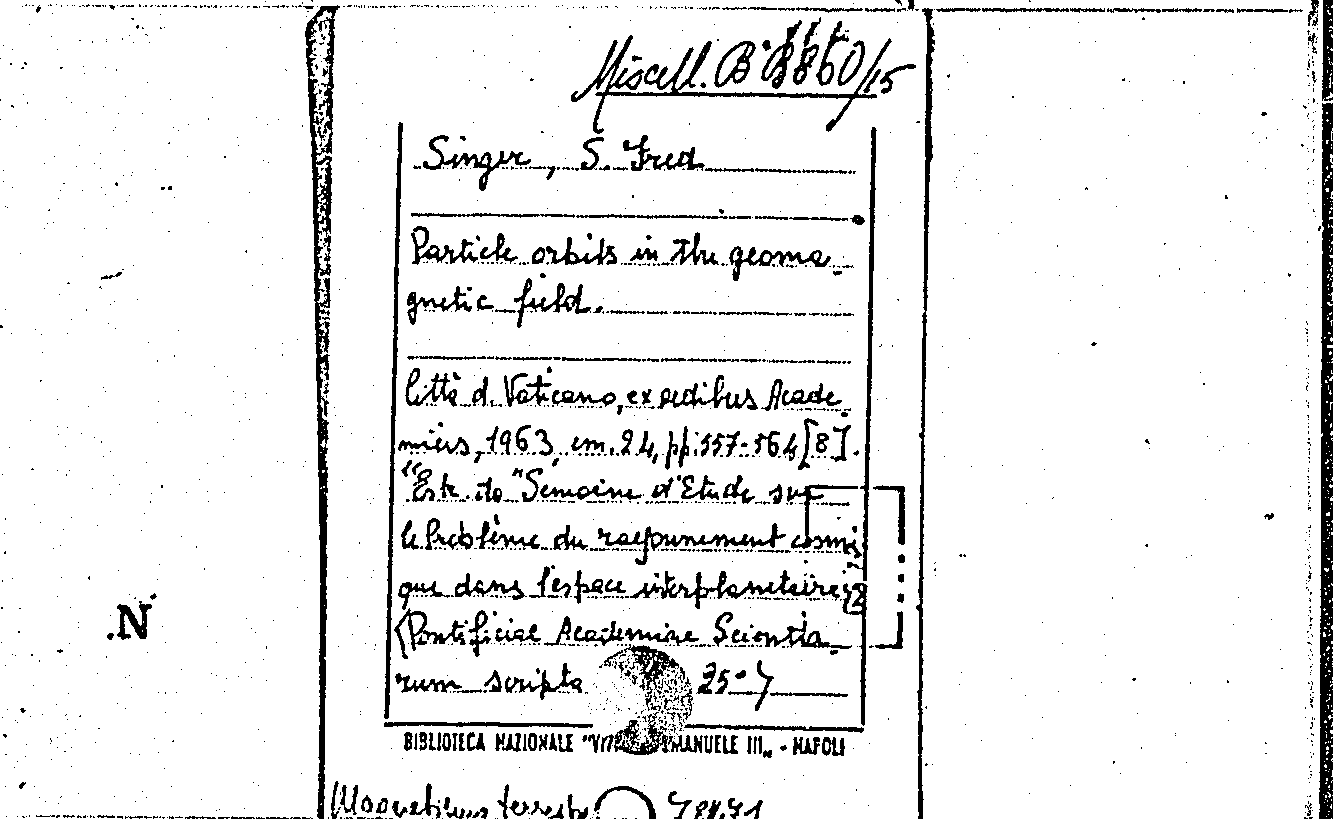 Miscell. B. B860/15
Singer, S. Fred
Particle orbits in the geoma-
gnetic field.
Città d. Vaticano, ex aedibus Acade-
miers, 1963, cm. 24, pp. 557-564 [8].
"Estr. da "Semaine d'Etude sur
le Problème du raeyounement cosmi-
que dans l'espace interplanetaire"
(Pontificiae Academiae Scientia-
rum scripta 25.)
BIBLIOTECA NAZIONALE "VIT EMANUELE III„ - NAPOLI
Magnetismo terrestre
.N